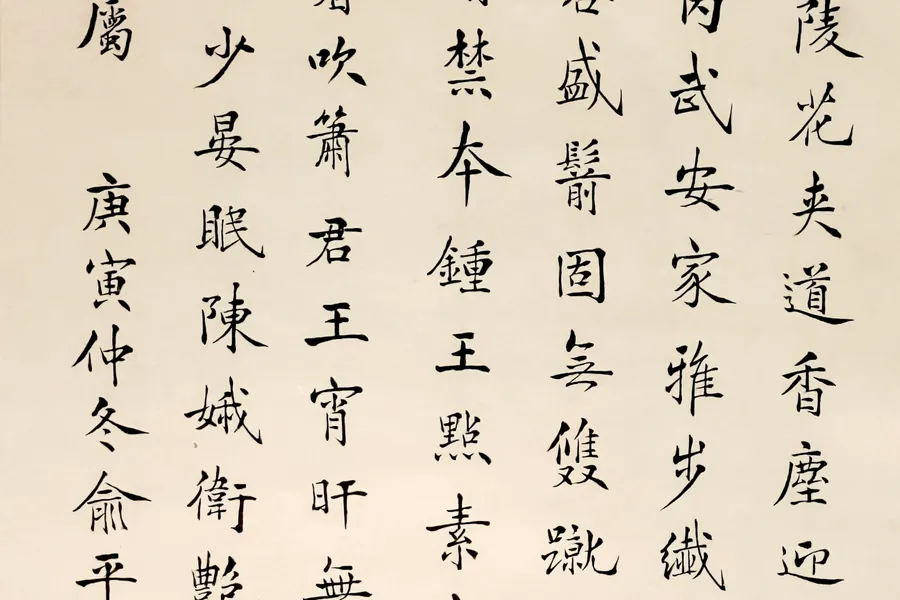 陵花夾道香塵迎
丙武安家雅步纖
盛鬋固無雙蹴
禁本鍾王點素
吹簫君王宵旰無
少晏眠陳娥衛艷
屬 庚寅仲冬俞平